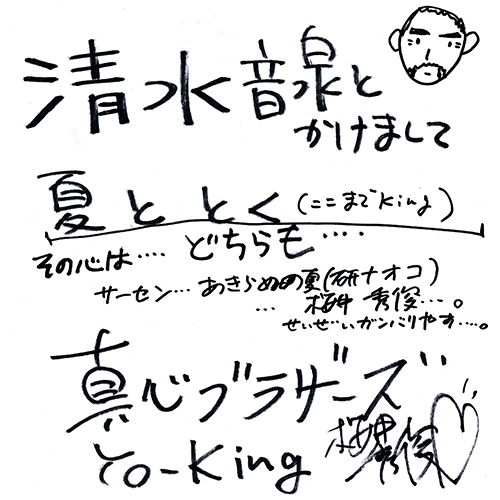 清水音泉と
かけまして
夏ととく(ここまでKing)
その心は‥‥どちらも‥‥
サーセン… あきらめの夏(研ナオコ)
… 桜井秀俊…。
せいぜいガンバりやす…。
真心ブラザーズ
Yo-King 桜井秀俊